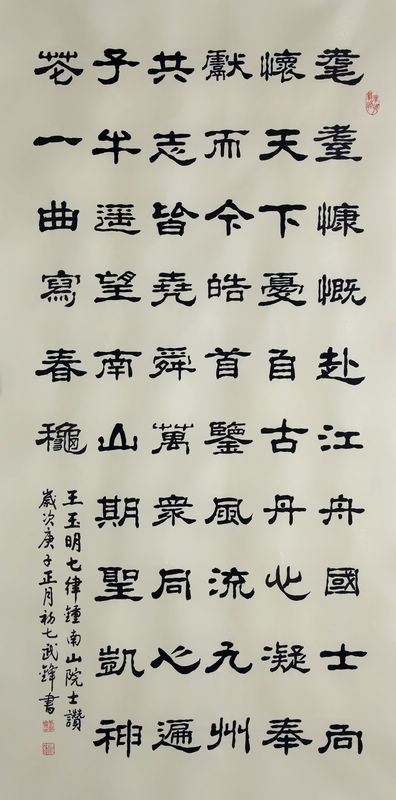 耄耋慷慨赴江舟國士尚
懷天下憂自古丹心凝奉
獻而今皓首鑒風流九州
共志皆堯舜萬衆同心遍
子牛遥望南山期聖凱神
花一曲寫春穐
王玉明七律鍾南山院士讚
歲次庚子正月初七武鋒書